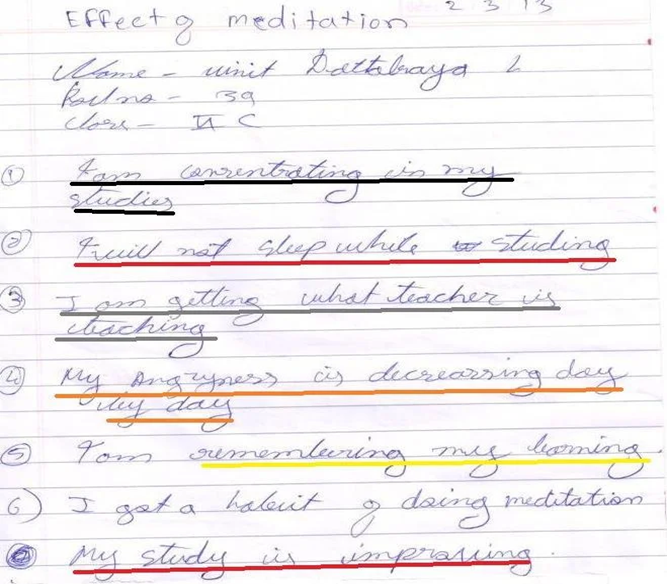 Effect of meditation 2 3 13
Name - vinit Dattatraya L
Roll no - 39
Class - IX C
1 I am consentrating in my
studies
2 I will not sleep while studing
3 I am getting what teacher is
teaching
4 My Angryness is decreassing day
by day
5 I am remembering my learning.
6) I got a habit of doing meditation
My study is improving.